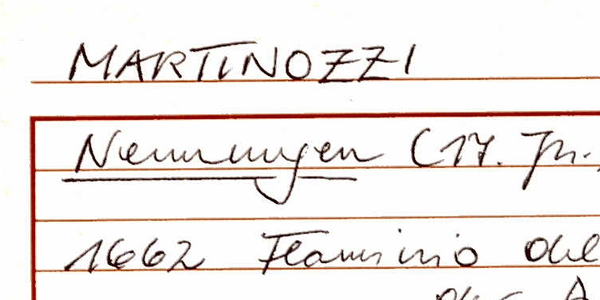 MARTINOZZI
Nennungen (17. Jh.
1662 Flaminio del
der A